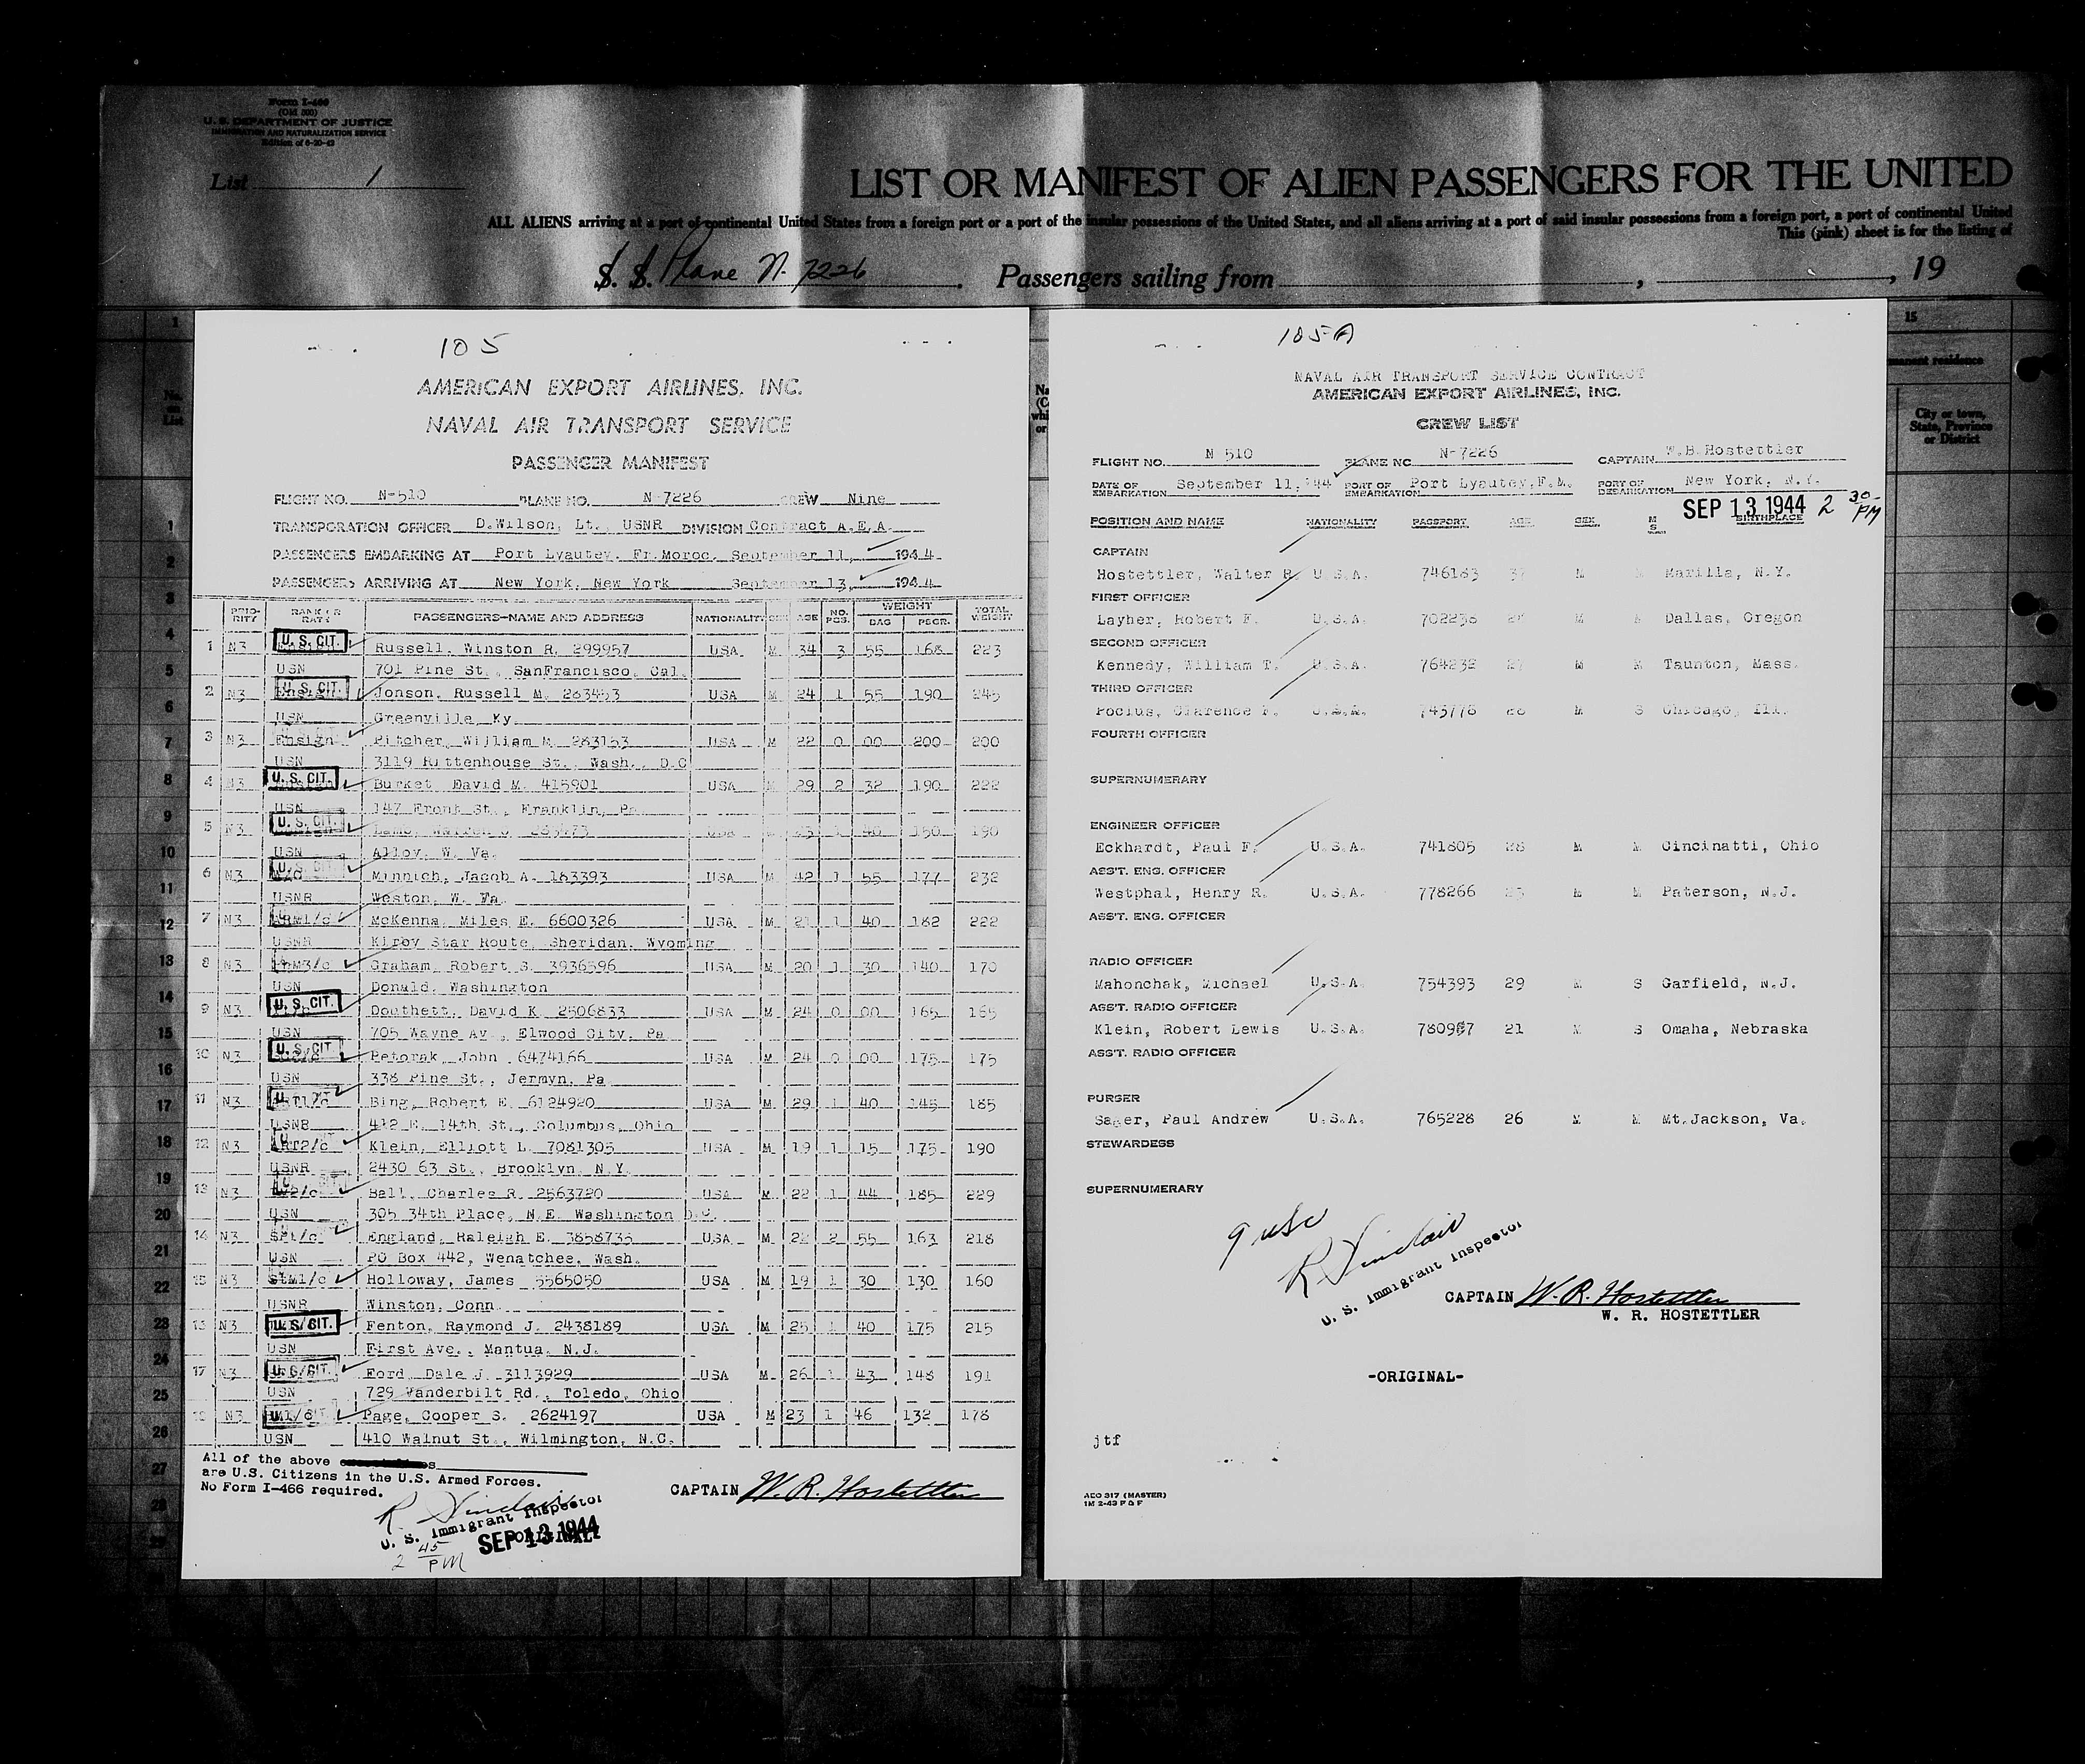 Form I-466
(Old 500)
U. S. DEPARTMENT OF JUSTICE
IMMIGRATION AND NATURALIZATION SERVICE
Edition of 6-20-43
List 1
LIST OR MANIFEST OF ALIEN PASSENGERS FOR THE UNITED
ALL ALIENS arriving at a port of continental United States from a foreign port or a port of the insular possessions of the United States, and all aliens arriving at a port of said insular possessions from a foreign port, a port of continental United
This (pink) sheet is for the listing of
S. S. Plane N. 7226. Passengers sailing from , , 19
105
AMERICAN EXPORT AIRLINES, INC.
NAVAL AIR TRANSPORT SERVICE
PASSENGER MANIFEST
FLIGHT NO. N-510 PLANE NO. N-7226 CREW Nine
TRANSPORATION OFFICER D.Wilson, Lt., USNR DIVISION Contract A.E.A.
PASSENGERS EMBARKING AT Port Lyautey, Fr.Moroc. September 11, 1944
PASSENGERS ARRIVING AT New York, New York September 13, 1944
PRIORITY RANK OR RATE PASSENGERS—NAME AND ADDRESS NATIONALITY SEX AGE NO. PCS. WEIGHT BAG PSGR. TOTAL WEIGHT
1 N3 U. S. CIT. Russell, Winston R. 299957 USA M 34 3 55 168 223
USN 701 Pine St., SanFrancisco, Cal.
2 N3 U. S. CIT. Jonson, Russell M. 283453 USA M 24 1 55 190 245
USN Greenville, Ky.
3 N3 Ensign Pitcher, William M. 283153 USA M 22 0 00 200 200
USN 3119 Rittenhouse St., Wash., D.C
4 N3 U. S. CIT. Burket, David M. 415901 USA M 29 2 32 190 222
USN 147 Front St., Franklin, Pa.
5 N3 U. S. CIT. USA 23 1 40 150 190
USN Alloy, W. Va.
6 N3 U. S. CIT. Minnich, Jacob A. 183393 USA M 42 1 55 177 232
USNR Weston, W. Va.
7 N3 ARM1/c McKenna, Miles E. 6600326 USA M 21 1 40 182 222
USNR Kirby Star Route, Sheridan, Wyoming
8 N3 Graham, Robert S. 3936596 USA M 20 1 30 140 170
USN Donald, Washington
9 N3 U. S. CIT. Douthett, David K. 2506833 USA M 24 0 00 165 165
USN 705 Wayne Av., Elwood City, Pa
10 N3 U. S. CIT. Petorak, John 6474166 USA M 24 0 00 175 175
USN 338 Pine St., Jermyn, Pa
11 N3 Bing, Robert E. 6124920 USA M 29 1 40 145 185
USNR 412 E. 14th St., Columbus, Ohio
12 N3 Klein, Elliott L. 7081305 USA M 19 1 15 175 190
USNR 2430 63 St., Brooklyn, N.Y.
13 N3 Ball, Charles R. 2563720 USA M 22 1 44 185 229
USN 305 34th Place, N.E. Washington D.C.
14 N3 England, Raleigh E. 3858735 USA M 22 2 55 163 218
USN PO Box 442, Wenatchee, Wash.
15 N3 StM1/c Holloway, James 5565050 USA M 19 1 30 130 160
USNR Winston, Conn.
N3 U. S. CIT. Fenton, Raymond J. 2438189 USA M 25 1 40 175 215
USN First Ave., Mantua, N.J.
17 N3 U. S. CIT. Ford, Dale J. 3113929 USA M 26 1 43 148 191
USN 729 Vanderbilt Rd., Toledo, Ohio
N3 Page, Cooper S. 2624197 USA M 23 1 46 132 178
USN 410 Walnut St., Wilmington, N.C.
All of the above
are U.S. Citizens in the U.S. Armed Forces.
No Form I-466 required.
CAPTAIN W. R. Hostettler
R Sinclair
U. S. Immigrant Inspector
SEP 13 1944
2 45 PM
105A
NAVAL AIR TRANSPORT SERVICE CONTRACT
AMERICAN EXPORT AIRLINES, INC.
CREW LIST
FLIGHT NO. N 510 PLANE NO N-7226 CAPTAIN W.B.Hostettler
DATE OF EMBARKATION September 11,'44 PORT OF EMBARKATION Port Lyautey,F.M. PORT OF DEBARKATION New York, N.Y.
SEP 13 1944 2 30 PM
POSITION AND NAME NATIONALITY PASSPORT AGE SEX M S BIRTHPLACE
CAPTAIN
Hostettler, Walter R. U.S.A. 746183 37 M M Marilla, N.Y.
FIRST OFFICER
Layher, Robert F. U.S.A. 702238 M M Dallas, Oregon
SECOND OFFICER
Kennedy, William T. U.S.A. 764232 27 M M Taunton, Mass.
THIRD OFFICER
Pocius, Clarence F. U.S.A. 743778 28 M S Chicago, Ill.
FOURTH OFFICER
SUPERNUMERARY
ENGINEER OFFICER
Eckhardt, Paul F. U.S.A. 741805 28 M M Cincinatti, Ohio
ASS'T. ENG. OFFICER
Westphal, Henry R. U.S.A. 778266 23 M M Paterson, N.J.
ASS'T. ENG. OFFICER
RADIO OFFICER
Mahonchak, Michael U.S.A. 754393 29 M S Garfield, N.J.
ASS'T. RADIO OFFICER
Klein, Robert Lewis U.S.A. 780987 21 M S Omaha, Nebraska
ASS'T. RADIO OFFICER
PURSER
Sager, Paul Andrew U.S.A. 765228 26 M M Mt.Jackson, Va.
STEWARDESS
SUPERNUMERARY
9 usc
R Sinclair
U. S. Immigrant Inspector
CAPTAIN W. R. Hostettler
W. R. HOSTETTLER
-ORIGINAL-
jtf
AEO 317 (MASTER)
1M 2-43 P & F
15
permanent residence
City or town, State, Province or District